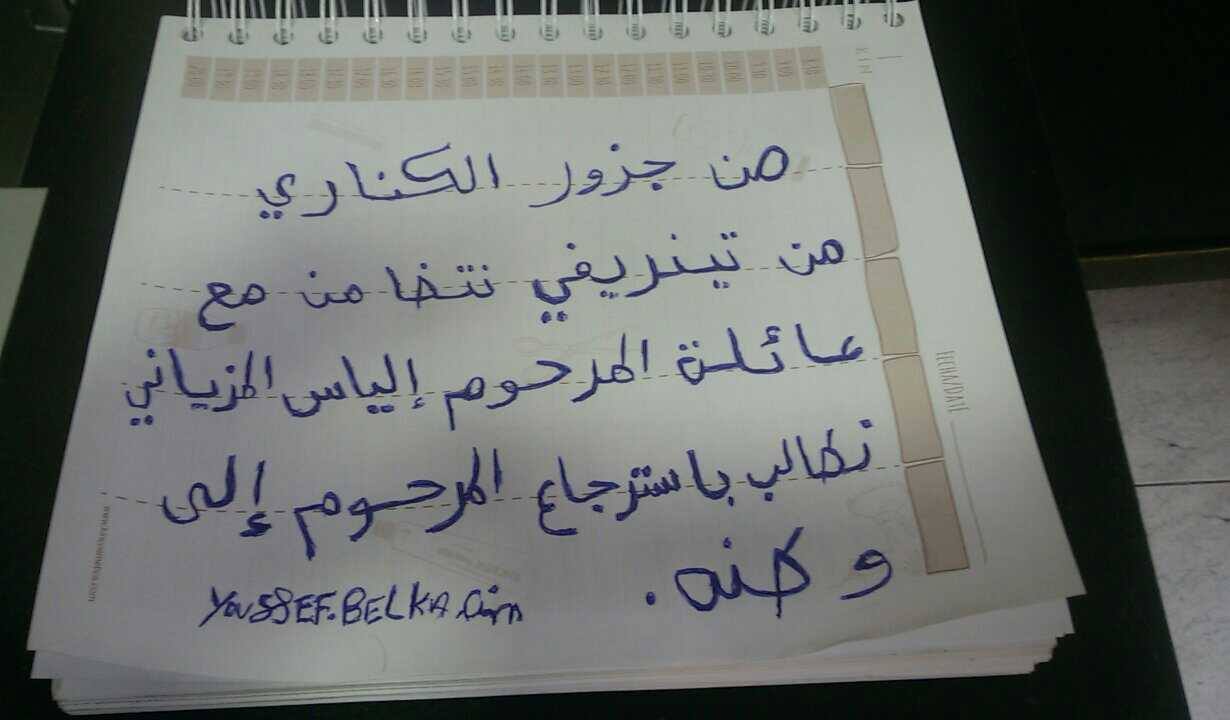 من جزور الكناري
من تينريفي نتضامن مع
عائلة المرحوم إلياس المزياني
نطالب باسترجاع المرحوم إلى
وطنه.
YOUSSEF.BELKA
FECHA/DATE